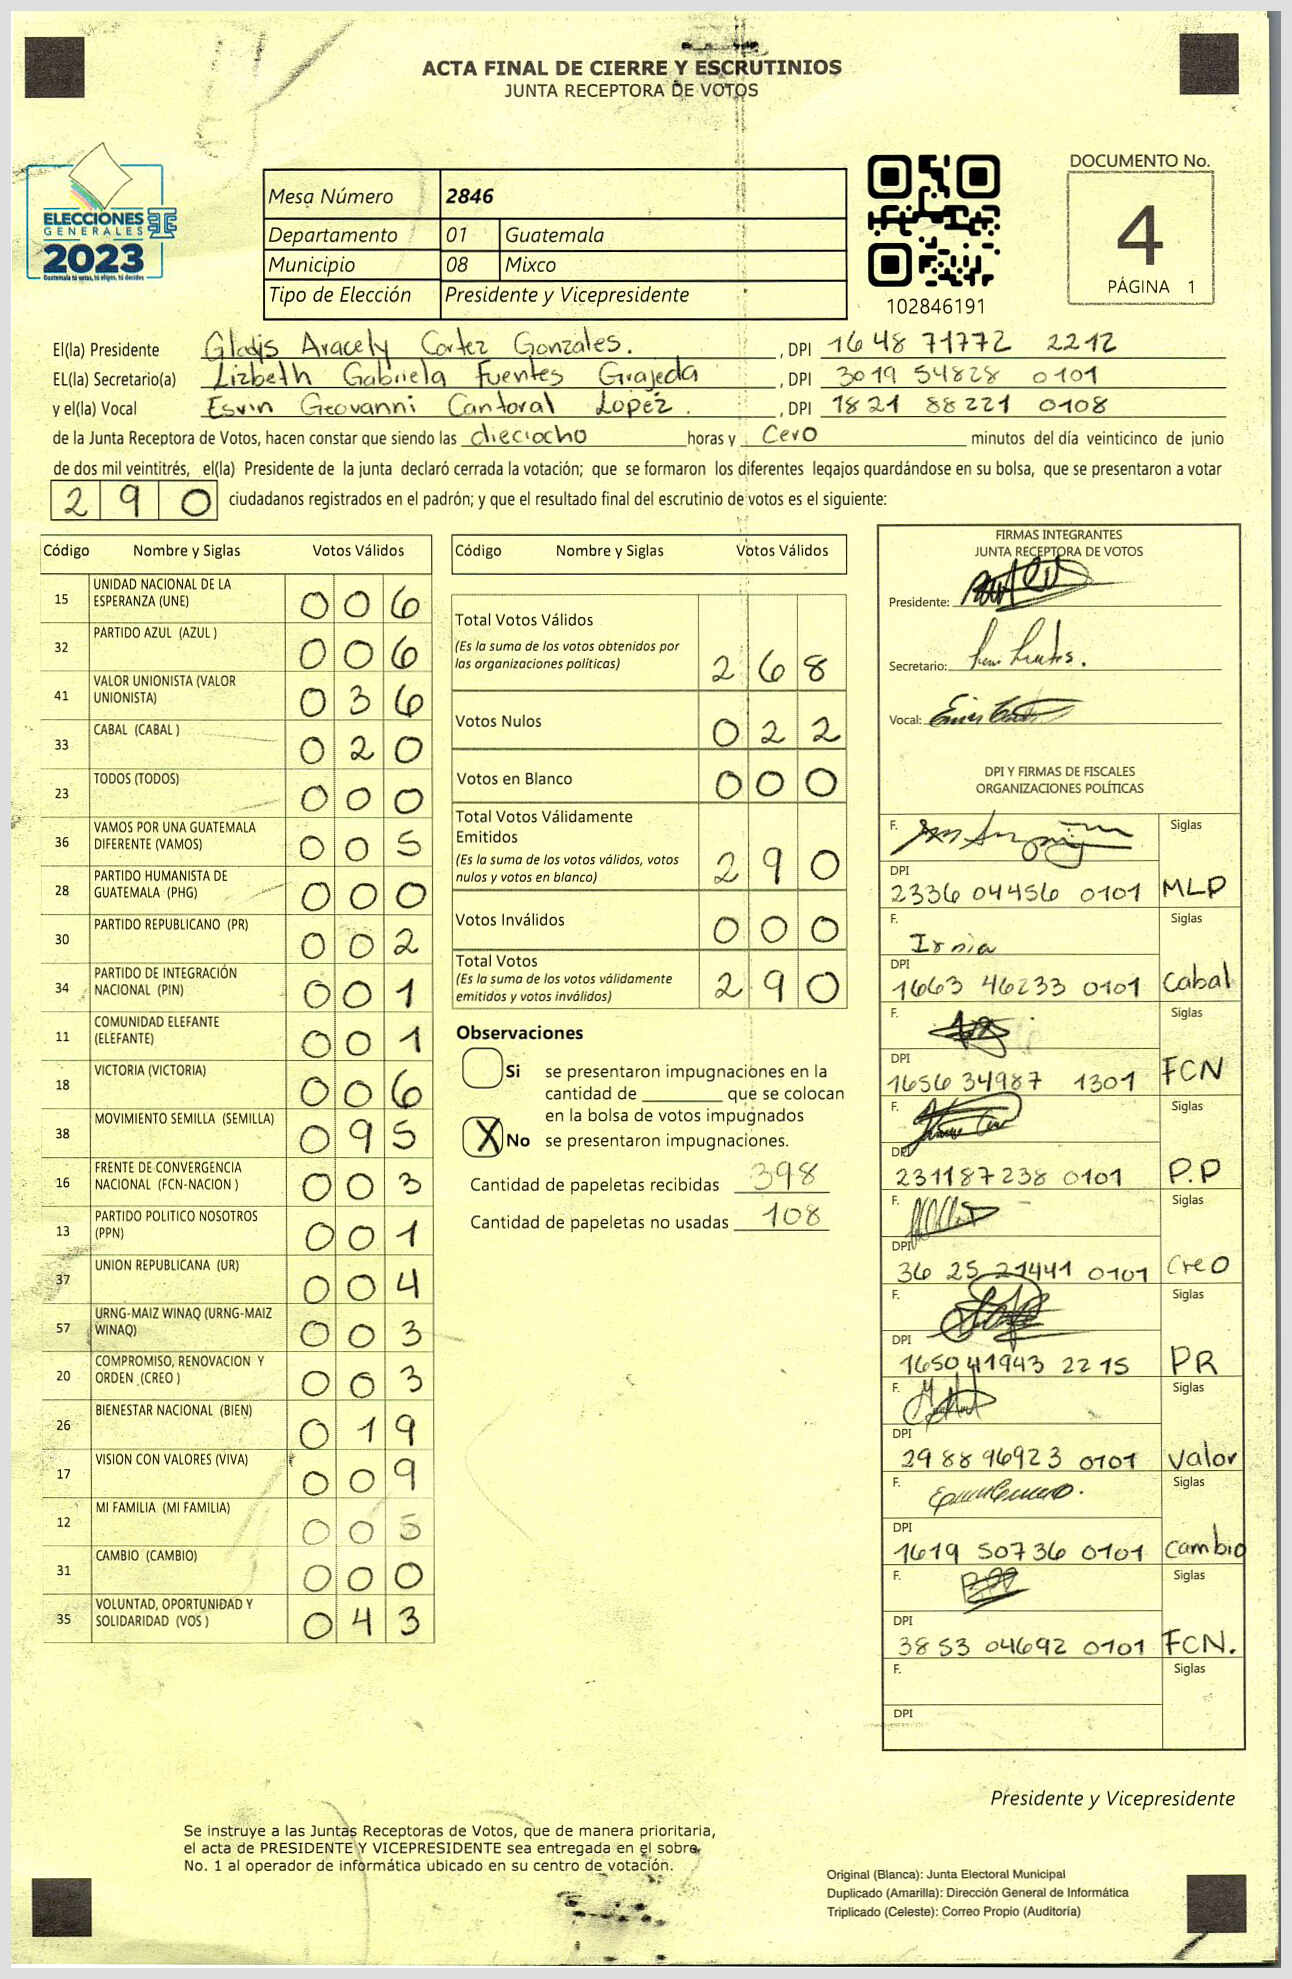 ACTA FINAL DE CIERRE Y ESCRUTINIOS
JUNTA RECEPTORA DE VOTOS
ELECCIONES
GENERALES
2023
Guatemala tú votas, tú eliges, tú decides
Mesa Número 2846
Departamento 01 Guatemala
Municipio 08 Mixco
Tipo de Elección Presidente y Vicepresidente
102846191
DOCUMENTO No.
4
PÁGINA 1
El(la) Presidente Gladis Aracely Cortez Gonzales. , DPI 1648 71772 2212
EL(la) Secretario(a) Lizbeth Gabriela Fuentes Grajeda , DPI 3019 54828 0101
y el(la) Vocal Esvin Geovanni Cantoral Lopez. , DPI 1821 88221 0108
de la Junta Receptora de Votos, hacen constar que siendo las dieciocho horas y Cero minutos del día veinticinco de junio
de dos mil veintitrés, el(la) Presidente de la junta declaró cerrada la votación; que se formaron los diferentes legajos guardándose en su bolsa, que se presentaron a votar
290 ciudadanos registrados en el padrón; y que el resultado final del escrutinio de votos es el siguiente:
Código Nombre y Siglas Votos Válidos
15 UNIDAD NACIONAL DE LA ESPERANZA (UNE) 006
32 PARTIDO AZUL (AZUL ) 006
41 VALOR UNIONISTA (VALOR UNIONISTA) 036
33 CABAL (CABAL ) 020
23 TODOS (TODOS) 000
36 VAMOS POR UNA GUATEMALA DIFERENTE (VAMOS) 005
28 PARTIDO HUMANISTA DE GUATEMALA (PHG) 000
30 PARTIDO REPUBLICANO (PR) 002
34 PARTIDO DE INTEGRACIÓN NACIONAL (PIN) 001
11 COMUNIDAD ELEFANTE (ELEFANTE) 001
18 VICTORIA (VICTORIA) 006
38 MOVIMIENTO SEMILLA (SEMILLA) 095
16 FRENTE DE CONVERGENCIA NACIONAL (FCN-NACION ) 003
13 PARTIDO POLITICO NOSOTROS (PPN) 001
37 UNION REPUBLICANA (UR) 004
57 URNG-MAIZ WINAQ (URNG-MAIZ WINAQ) 003
20 COMPROMISO, RENOVACION Y ORDEN (CREO ) 003
26 BIENESTAR NACIONAL (BIEN) 019
17 VISION CON VALORES (VIVA) 009
12 MI FAMILIA (MI FAMILIA) 005
31 CAMBIO (CAMBIO) 000
35 VOLUNTAD, OPORTUNIDAD Y SOLIDARIDAD (VOS ) 043
Código Nombre y Siglas Votos Válidos
Total Votos Válidos
(Es la suma de los votos obtenidos por
las organizaciones politicas) 268
Votos Nulos 022
Votos en Blanco 000
Total Votos Válidamente
Emitidos
(Es la suma de los votos válidos, votos
nulos y votos en blanco) 290
Votos Inválidos 000
Total Votos
(Es la suma de los votos válidamente
emitidos y votos inválidos) 290
Observaciones
Si se presentaron impugnaciones en la
cantidad de ________ que se colocan
en la bolsa de votos impugnados
X No se presentaron impugnaciones.
Cantidad de papeletas recibidas 398
Cantidad de papeletas no usadas 108
FIRMAS INTEGRANTES
JUNTA RECEPTORA DE VOTOS
Presidente:
Secretario:
Vocal:
DPI Y FIRMAS DE FISCALES
ORGANIZACIONES POLÍTICAS
F. Siglas
DPI
2336 04456 0101 MLP
F. Irnia Siglas
DPI
1663 46233 0101 Cabal
F. Siglas
DPI
1656 34987 1301 FCN
F. Siglas
DPI
231187238 0101 P.P
F. Siglas
DPI
36 25 21441 0101 CreO
F. Siglas
DPI
1650 41943 2215 PR
F. Siglas
DPI
29 88 96923 0101 Valor
F. Siglas
DPI
1619 50736 0101 Cambio
F. Siglas
DPI
3853 04692 0101 FCN.
F. Siglas
DPI
Presidente y Vicepresidente
Se instruye a las Juntas Receptoras de Votos, que de manera prioritaria,
el acta de PRESIDENTE Y VICEPRESIDENTE sea entregada en el sobre
No. 1 al operador de informática ubicado en su centro de votación.
Original (Blanca): Junta Electoral Municipal
Duplicado (Amarilla): Dirección General de Informática
Triplicado (Celeste): Correo Propio (Auditoría)